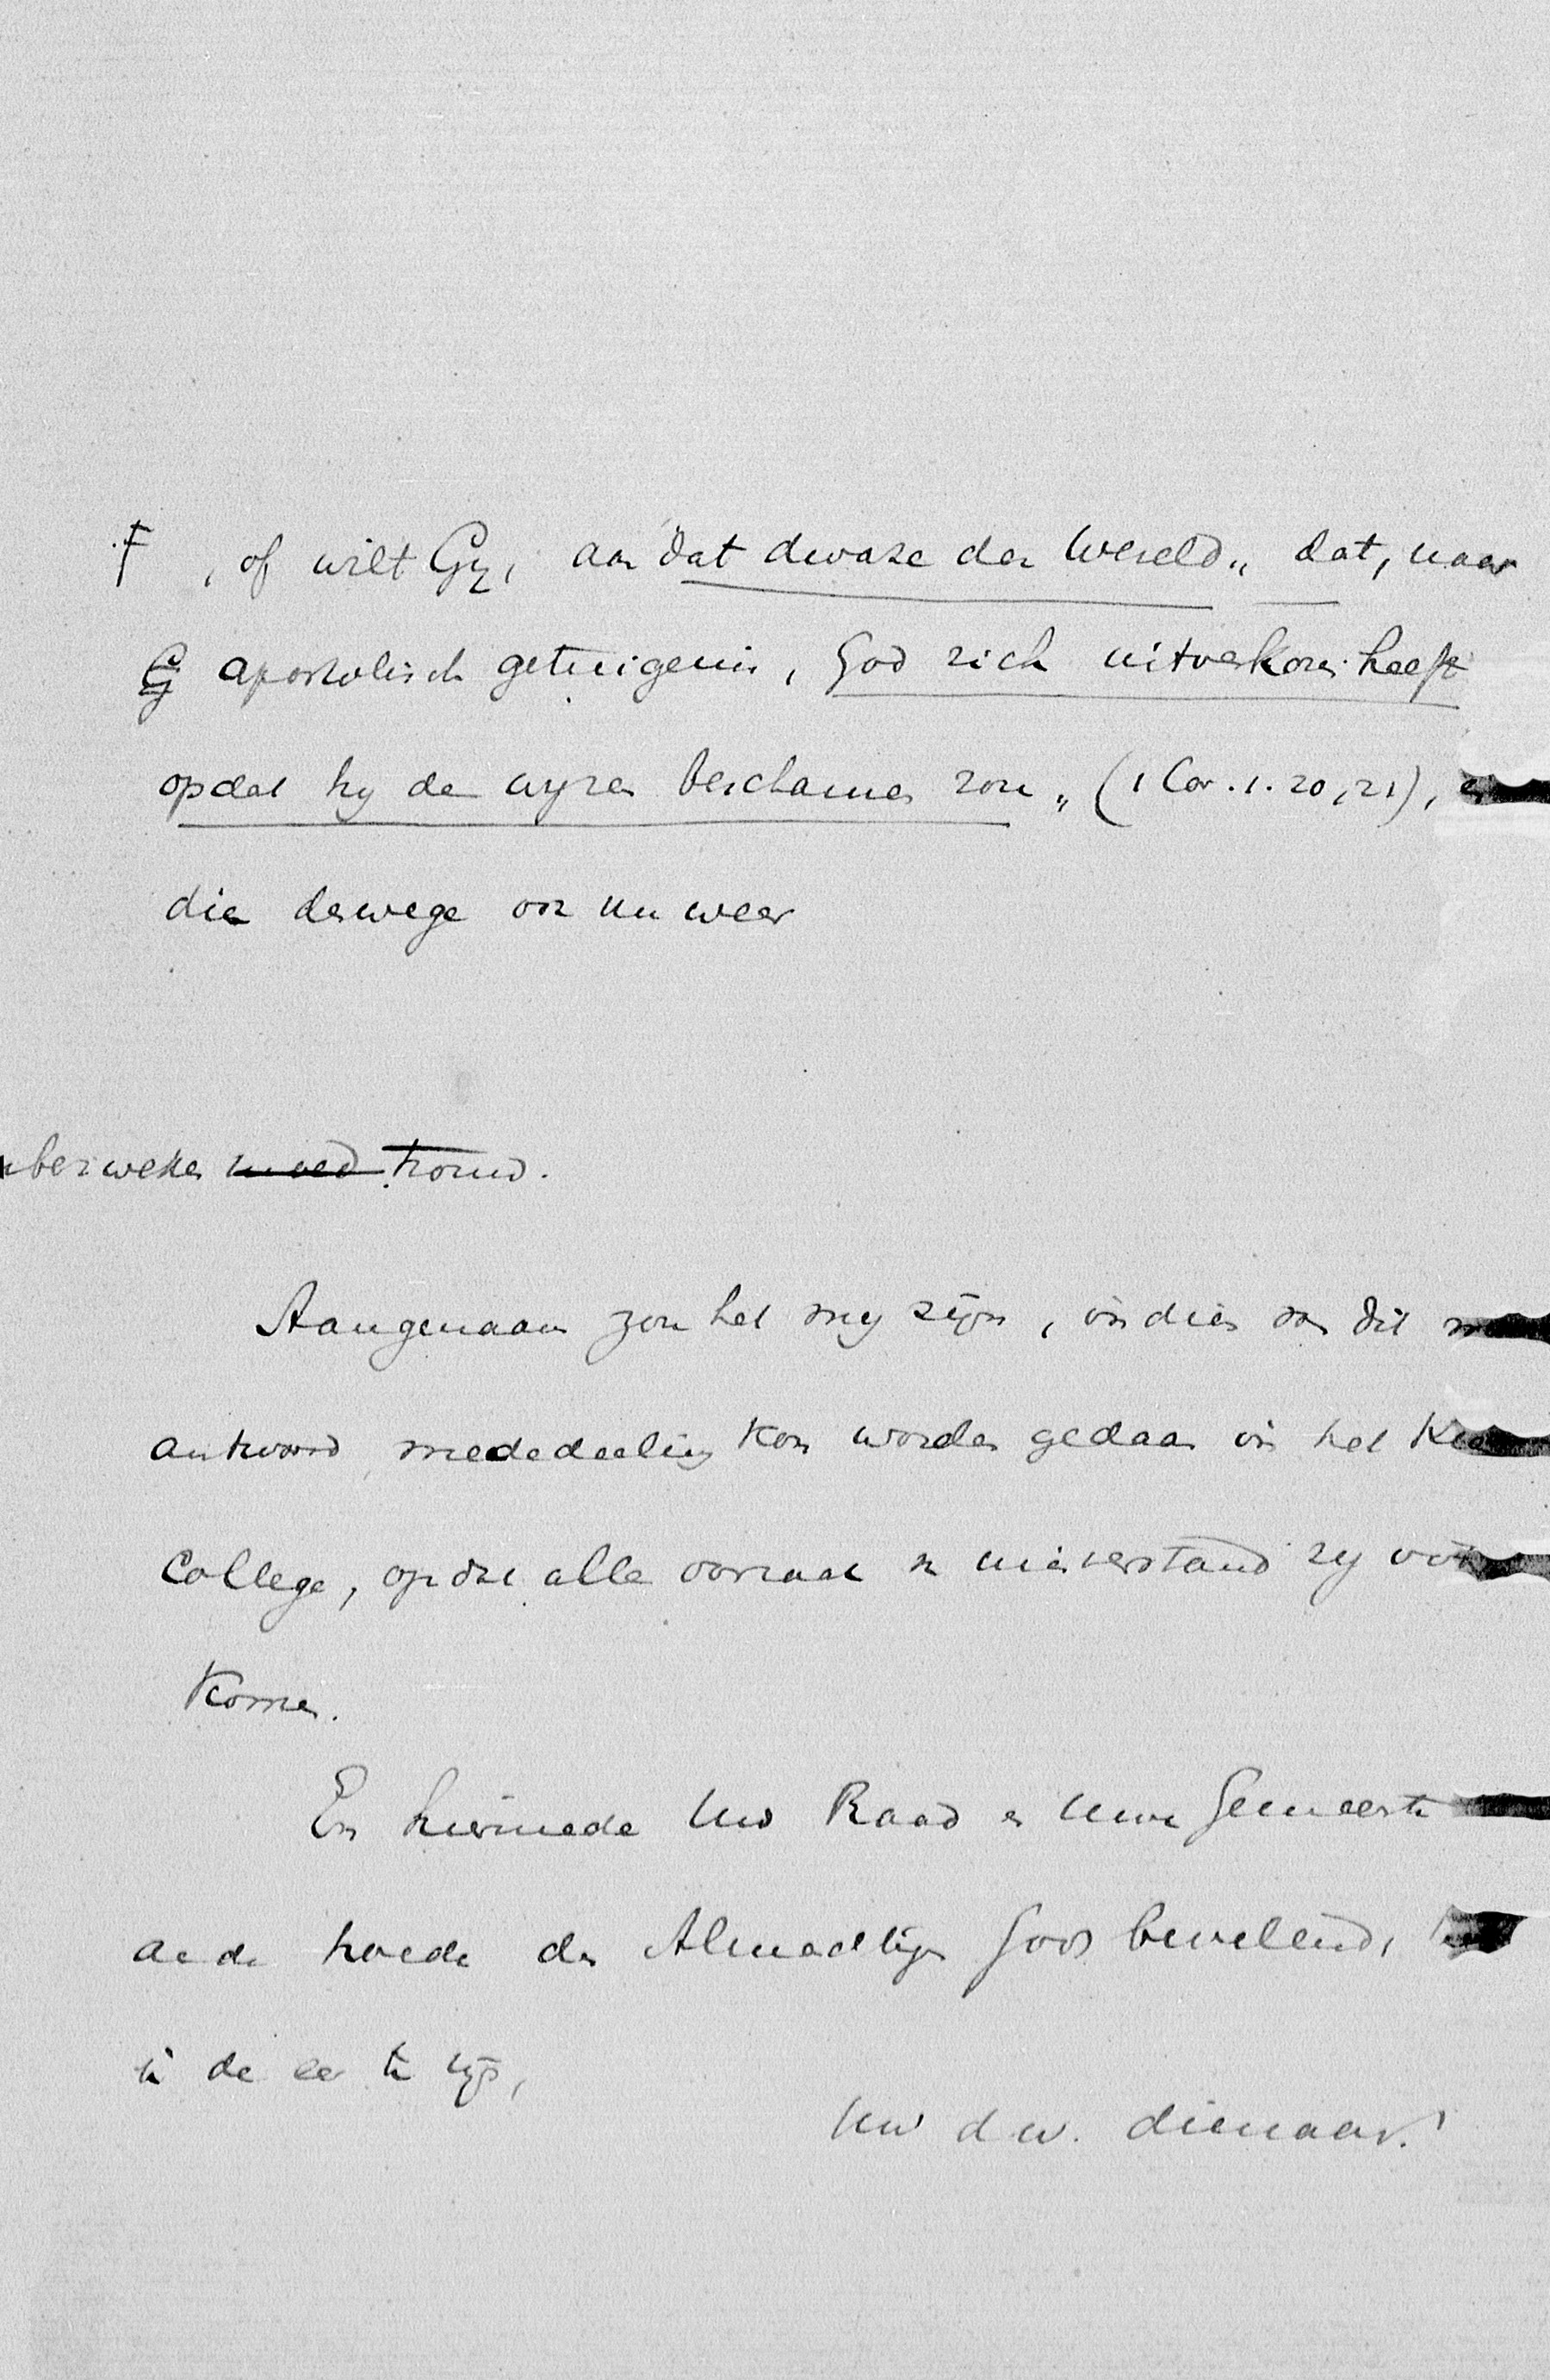 F , of wilt Gy, aan "dat dwaze der wereld„ dat, naar
apostolisch getuigenis, God zich uitverkoren heeft
opdat hy de wyzen beschamen zou„ (1 Cor. 1. 20, 21), en
die deswege ook nu weer
bezweken moed trouw.
Aangenaam zou het my zijn, indien van dit
antwoord, mededeeling kon worden gedaan in het
College, opdat alle oorzaak van misverstand zy voor
komen.
En hiermede Uw Raad en Uwe Gemeente
aan de hoede des Almachtigen Gods bevelend,
ik de eer te zijn,
Uw d w. dienaar.